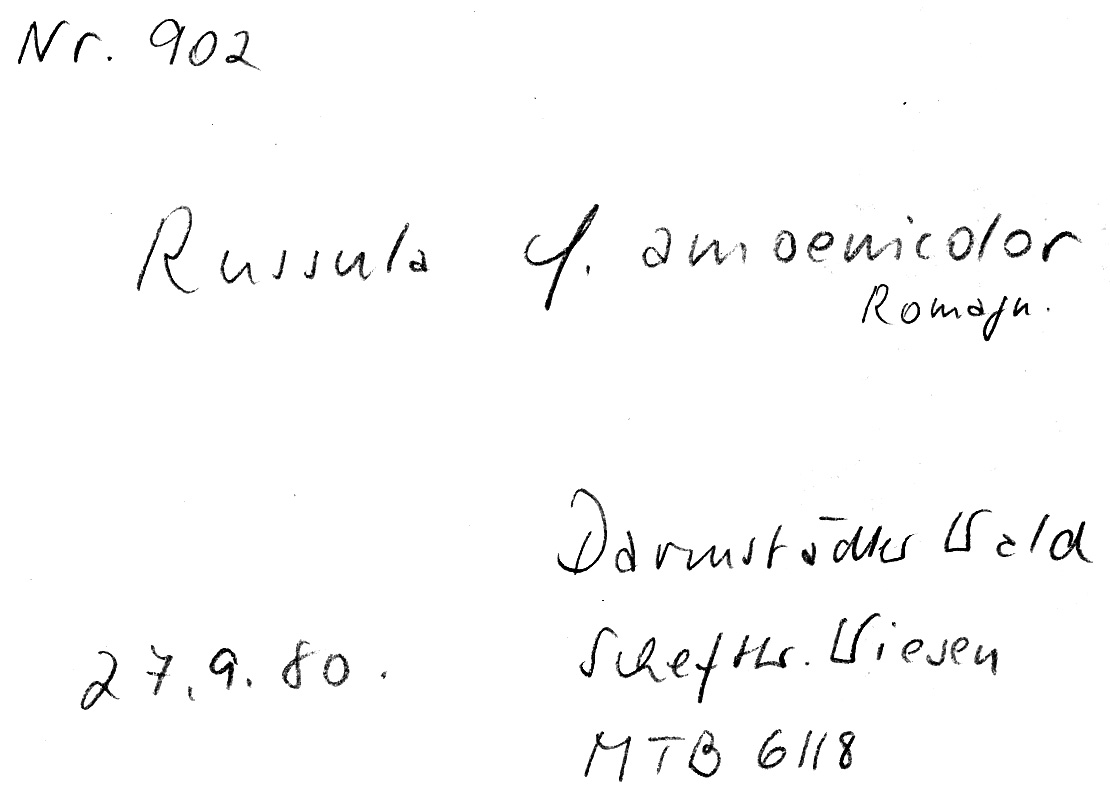 Nr. 902
Russula cf. amoenicolor
Romagn.
Darmstädter Wald
Schefthr. Wiesen
27.9.80.
MTB 6118